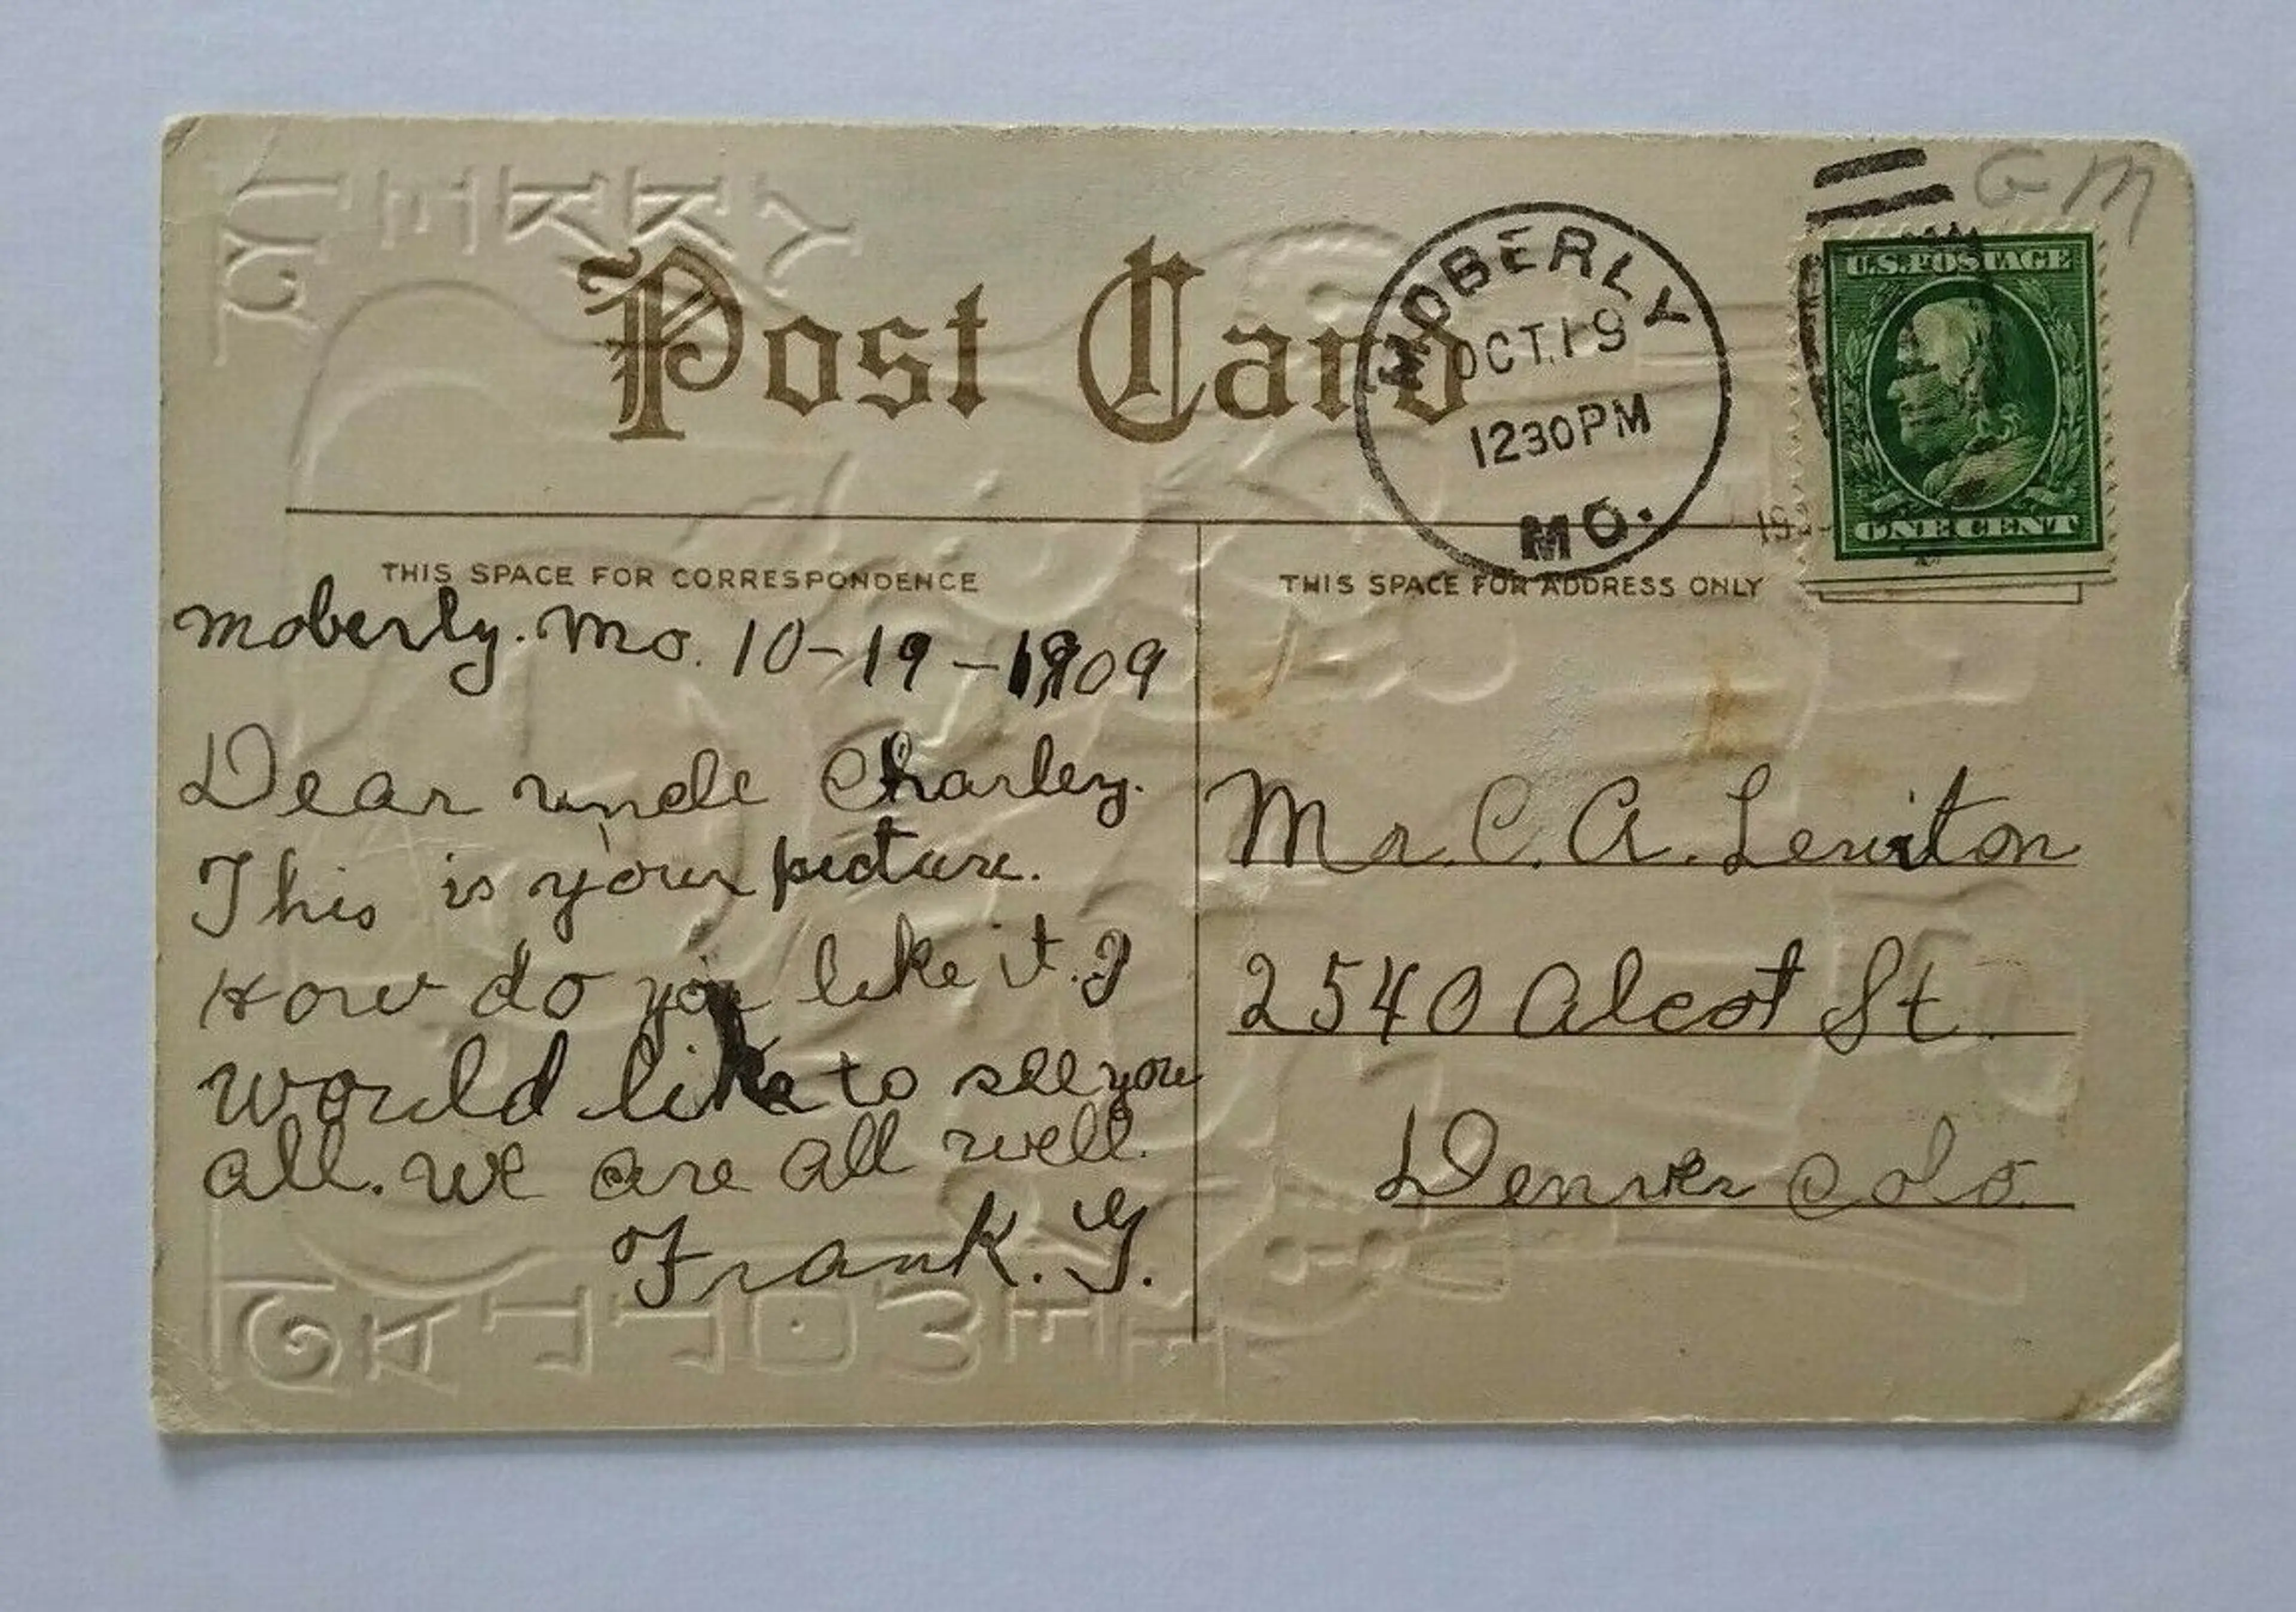 G M
U.S. POSTAGE
ONE CENT
MOBERLY
OCT. 19
1230 PM
MO.
Post Card
THIS SPACE FOR CORRESPONDENCE
Moberly. Mo. 10-19-1909
Dear uncle Charley.
This is your picture.
How do you like it. I
would like to see you
all. We are all well.
Frank. G.
THIS SPACE FOR ADDRESS ONLY
Mr. C. A. Lewiton
2540 Alcot St.
Denver Colo.